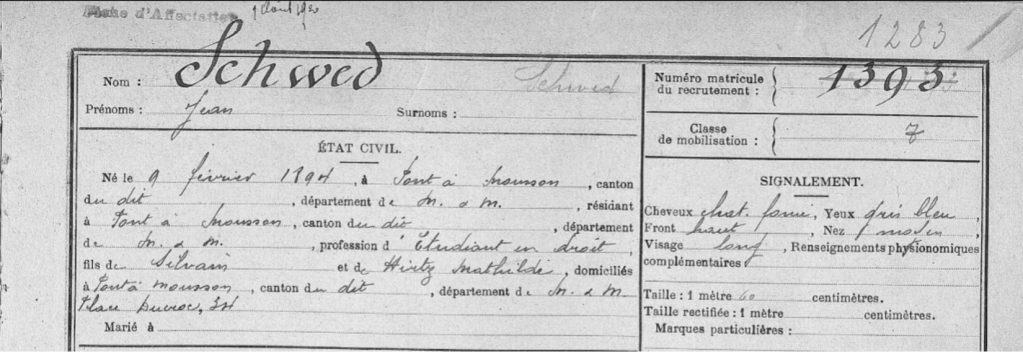 Fiche d'Affectation
1283
Nom : Schwed Schwed
Prénoms : Jean Surnoms :
ÉTAT CIVIL.
Né le 9 février 1894, à Pont à Mousson, canton
du dit, département de M. & M., résidant
à Pont à Mousson, canton du dit, département
de M. & M., profession d'Etudiant en droit,
fils de Silvain et de Hirtz Mathilde, domiciliés
à Pont à Mousson, canton du dit, département de M. & M.
Place Duroc, 34
Marié à
Numéro matricule
du recrutement : 1393
Classe
de mobilisation : 7
SIGNALEMENT.
Cheveux chat. foncé, Yeux gris bleu,
Front haut, Nez moyen
Visage long, Renseignements physionomiques
complémentaires
Taille : 1 mètre 60 centimètres.
Taille rectifiée : 1 mètre centimètres.
Marques particulières :